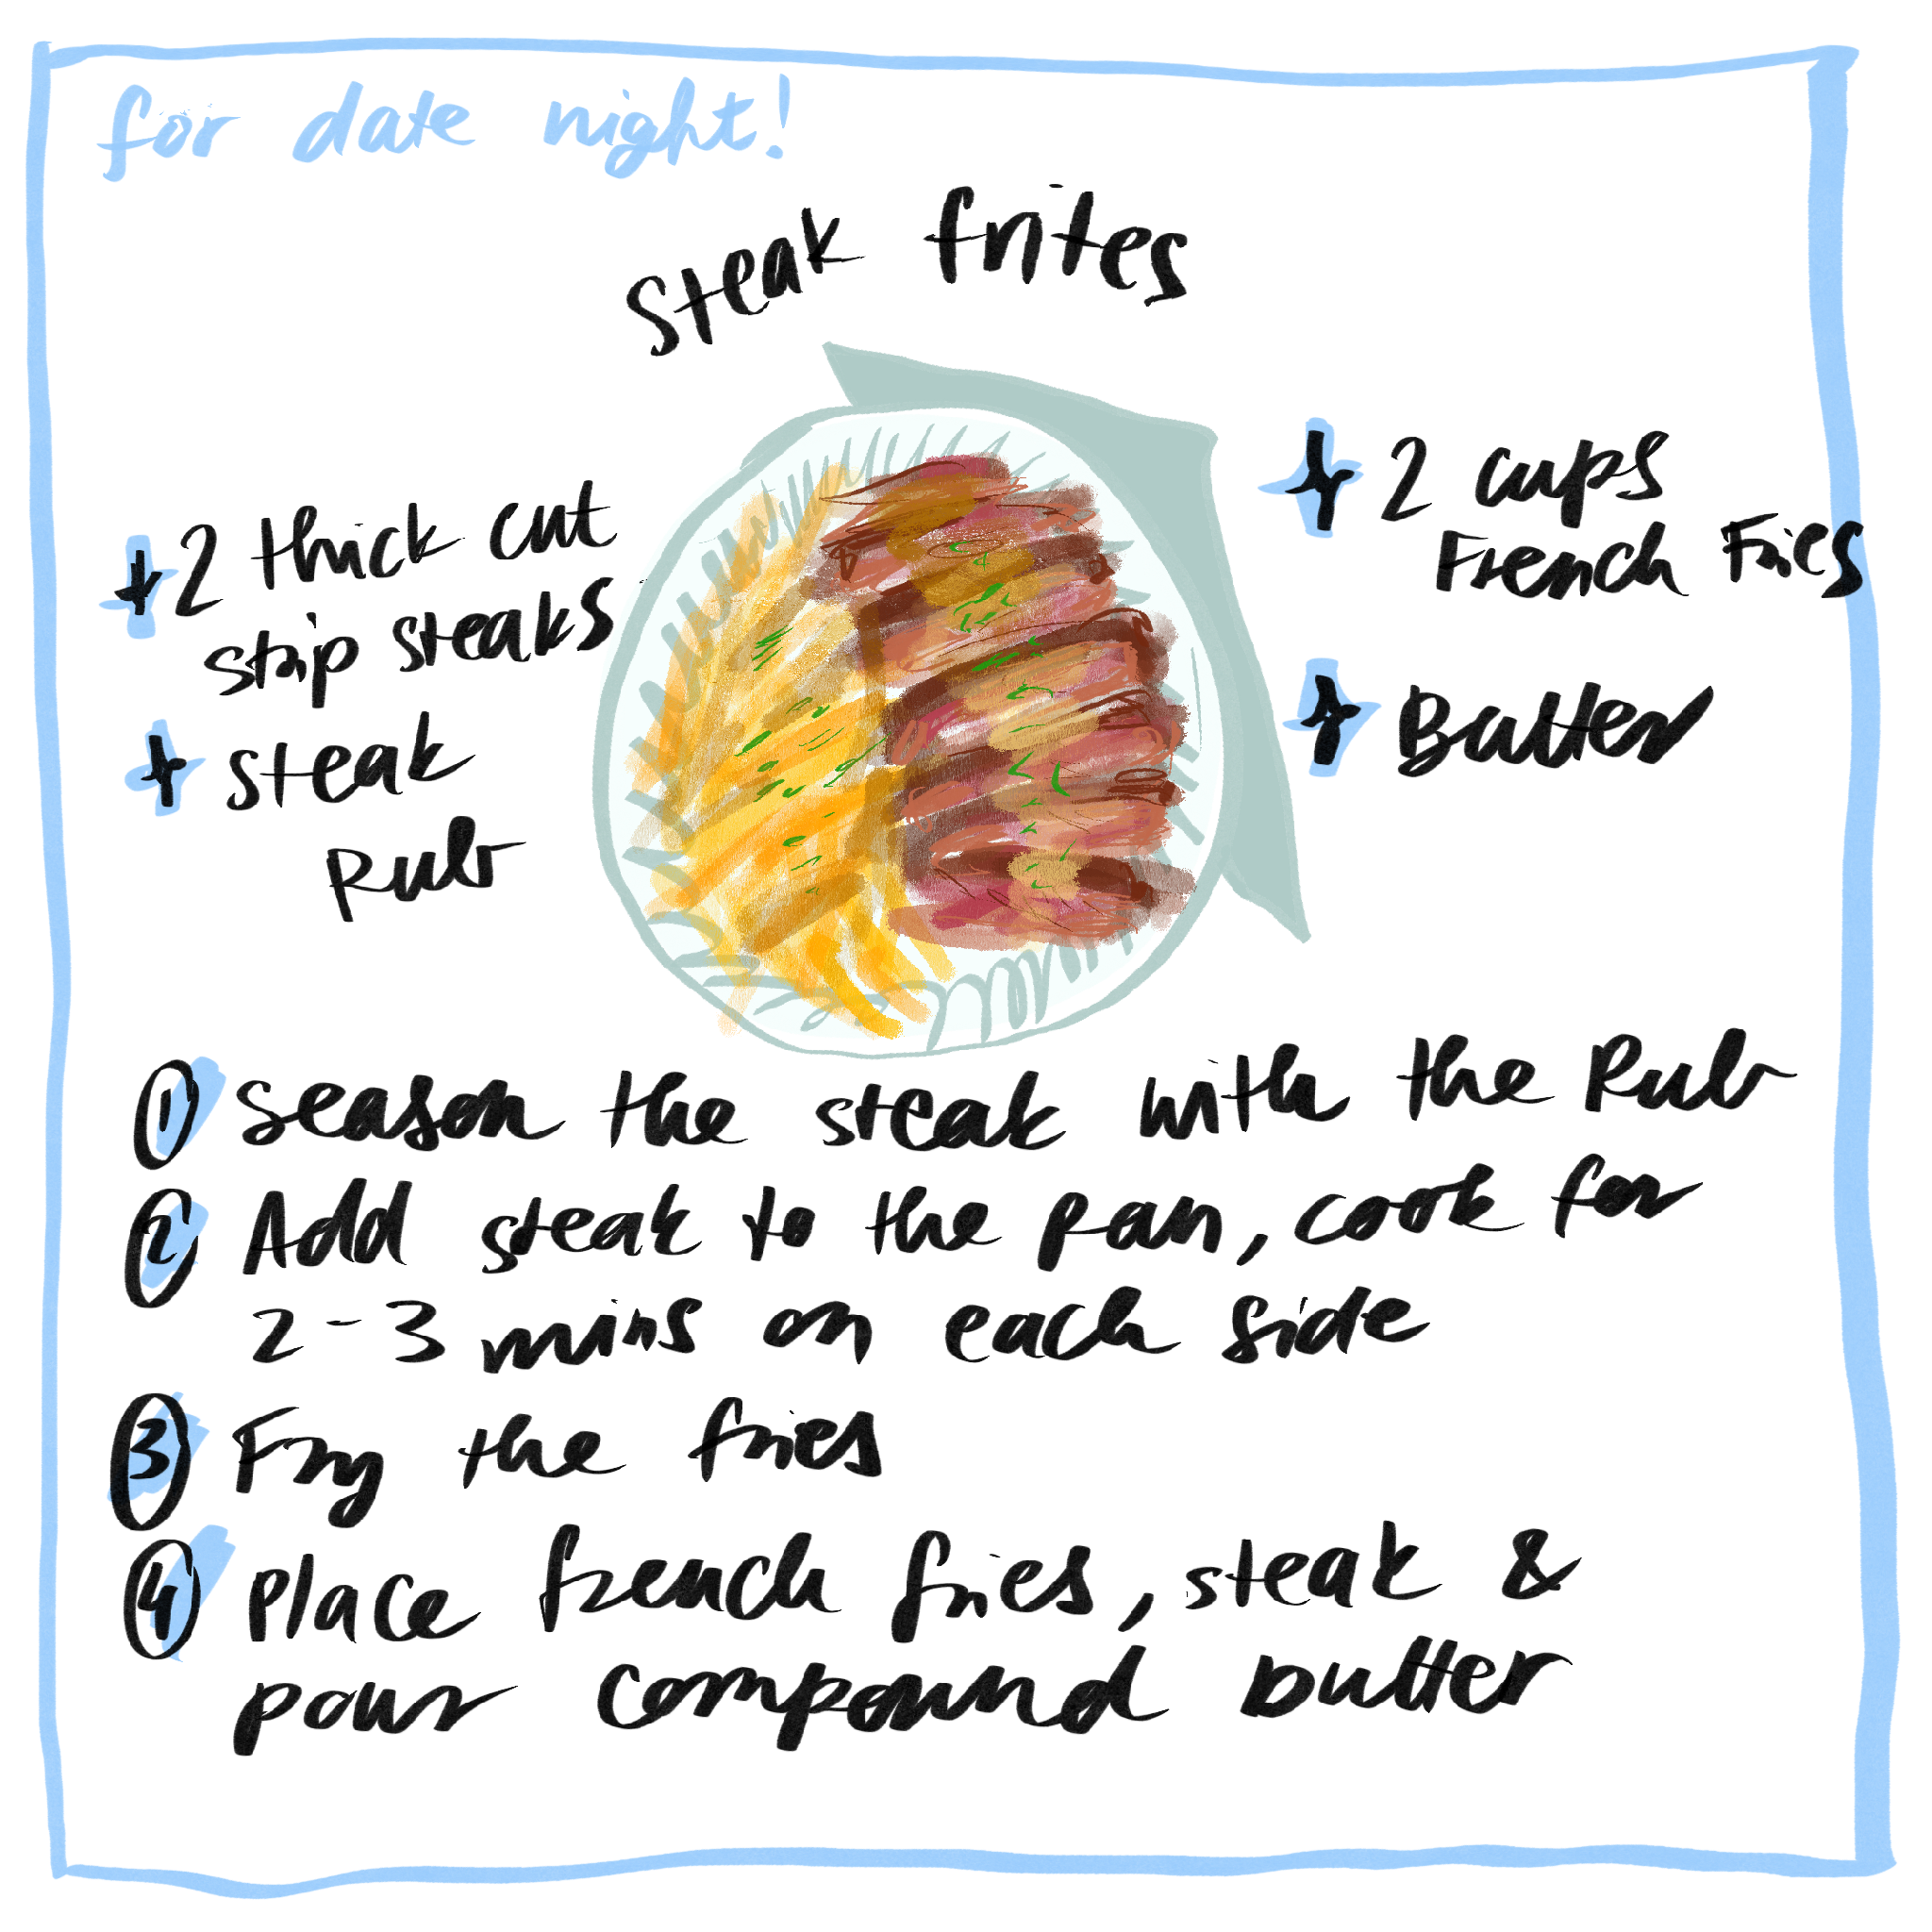 for date night!
steak frites
+ 2 thick cut
strip steaks
+ steak
Rub
+ 2 cups
French Fries
+ Butter
1 season the steak with the Rub
2 Add steak to the pan, cook for
2-3 mins on each side
3 Fry the fries
4 Place french fries, steak &
pour compound butter